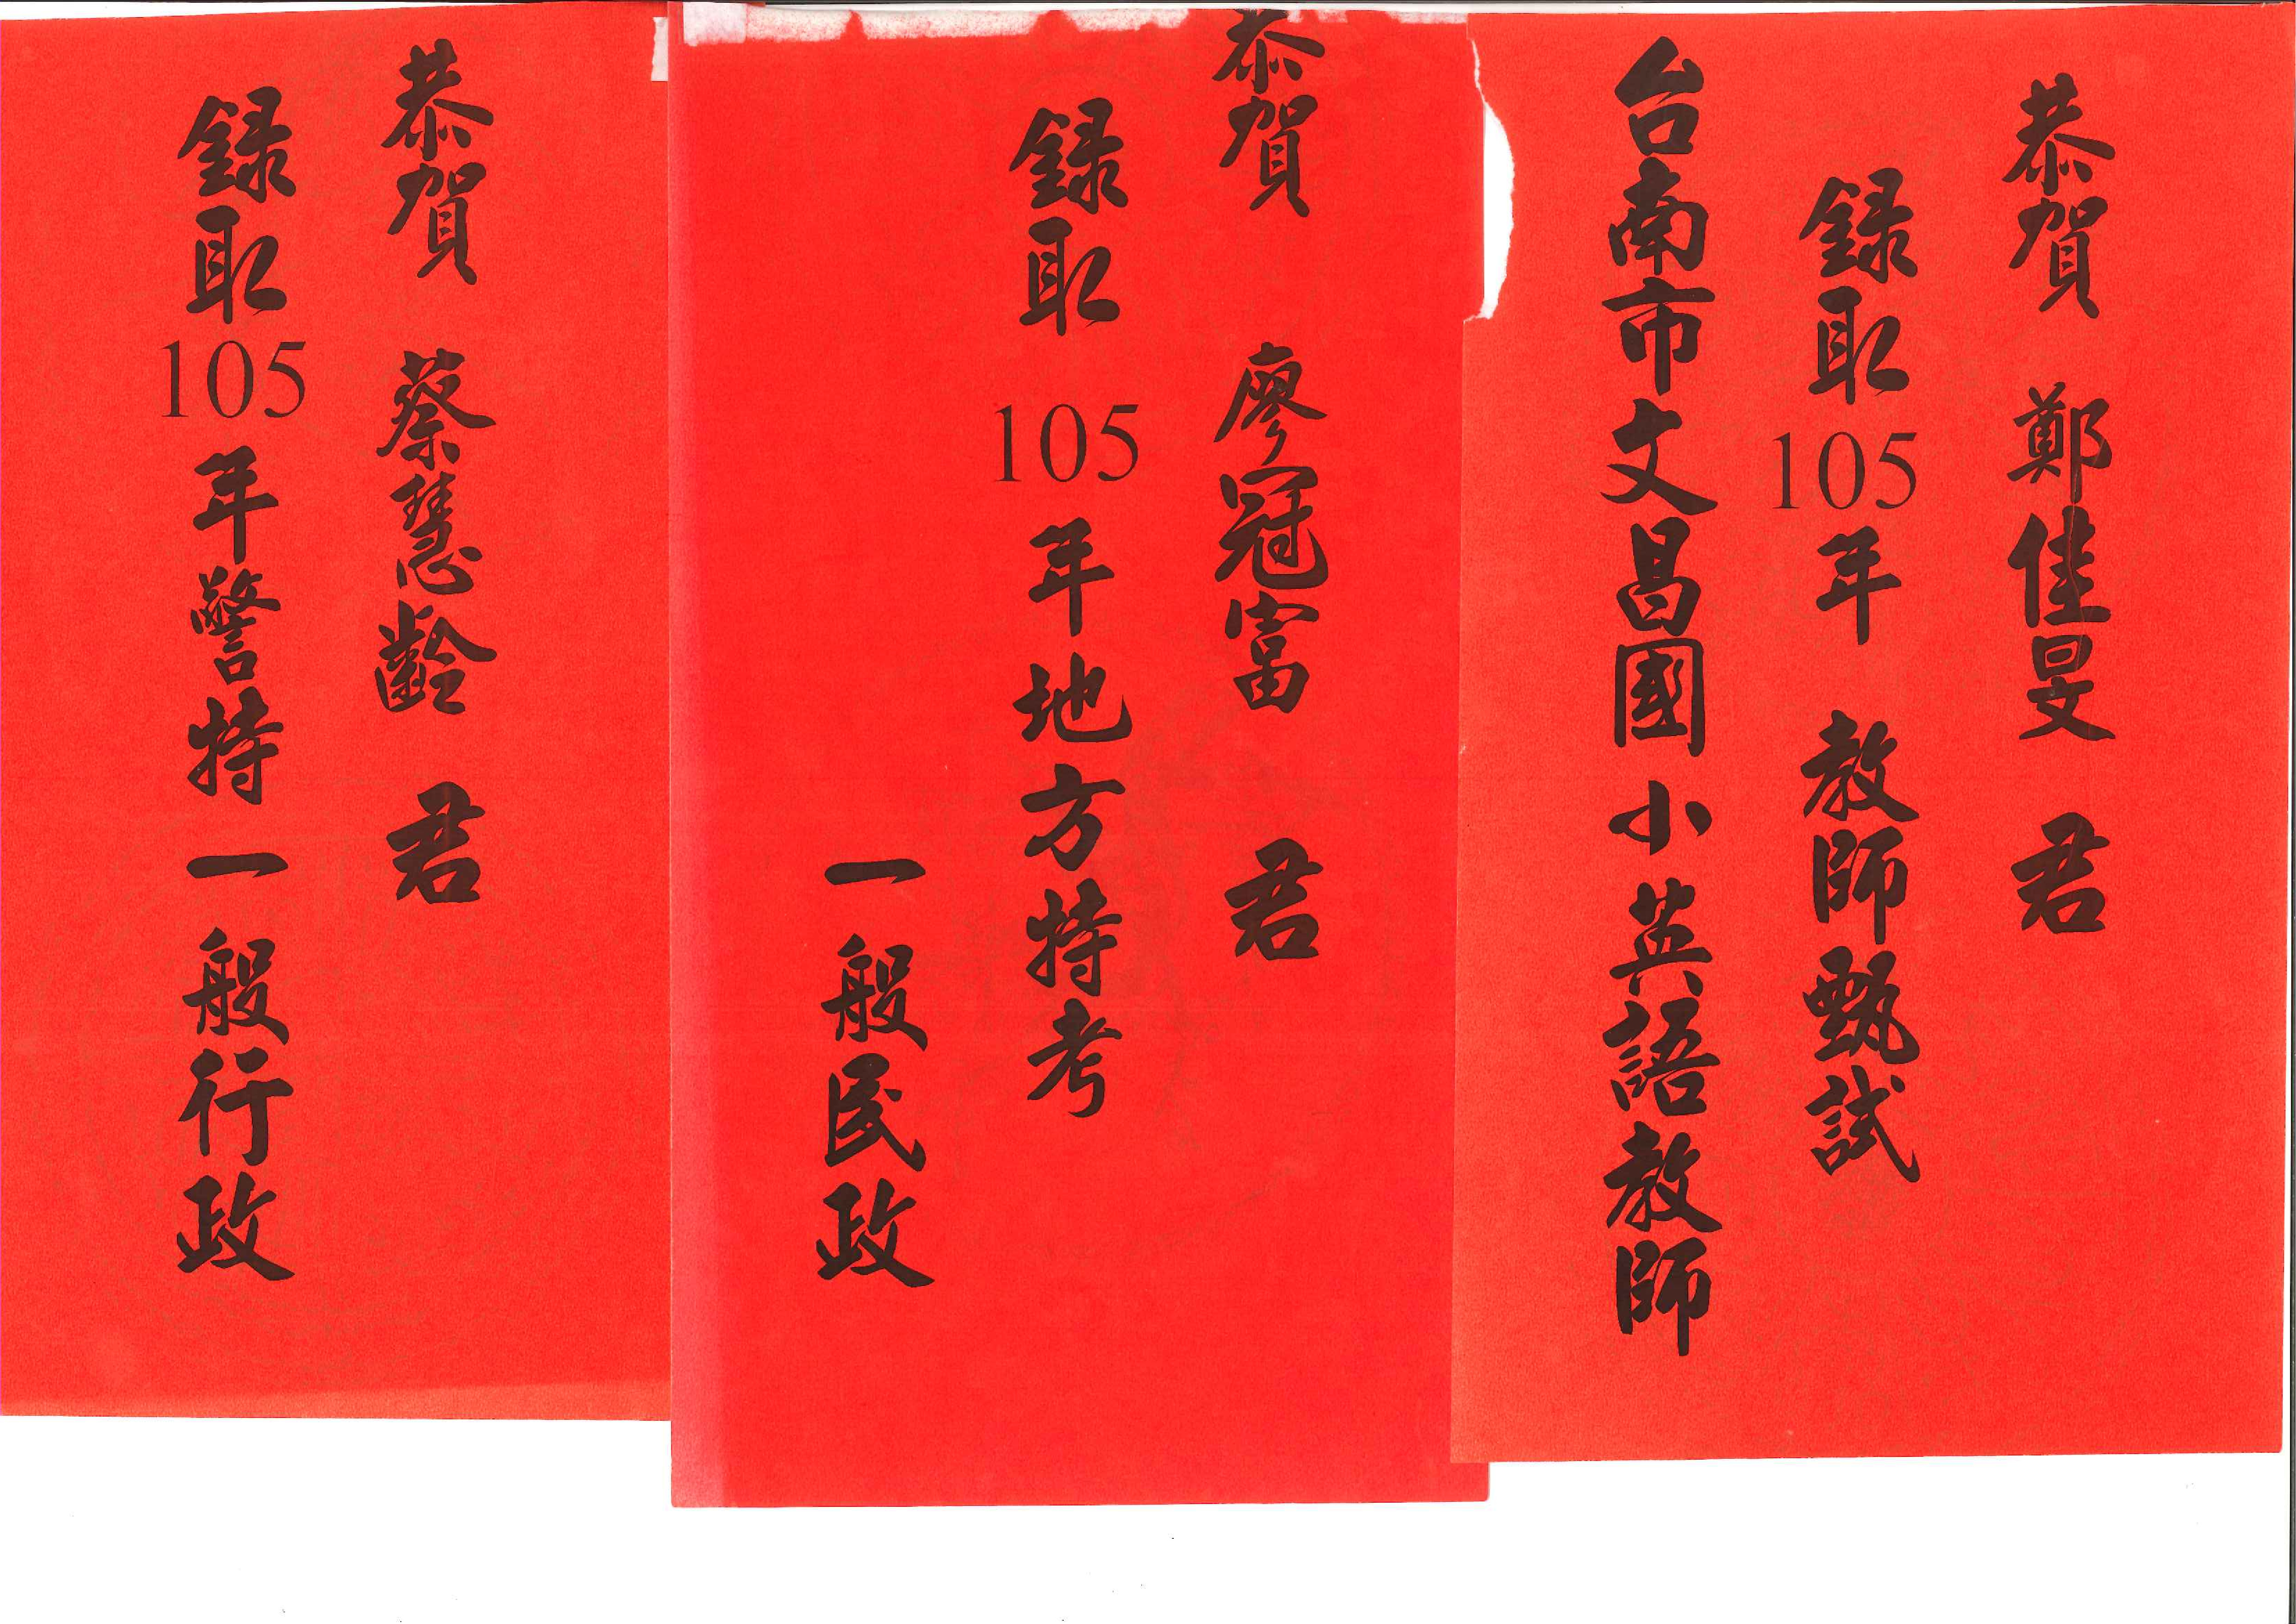 恭賀 鄭佳旻 君
錄取105年 教師甄試
台南市文昌國小英語教師
恭賀 廖冠富 君
錄取 105年地方特考
一般民政
恭賀 蔡慧齡 君
錄取105年警特一般行政